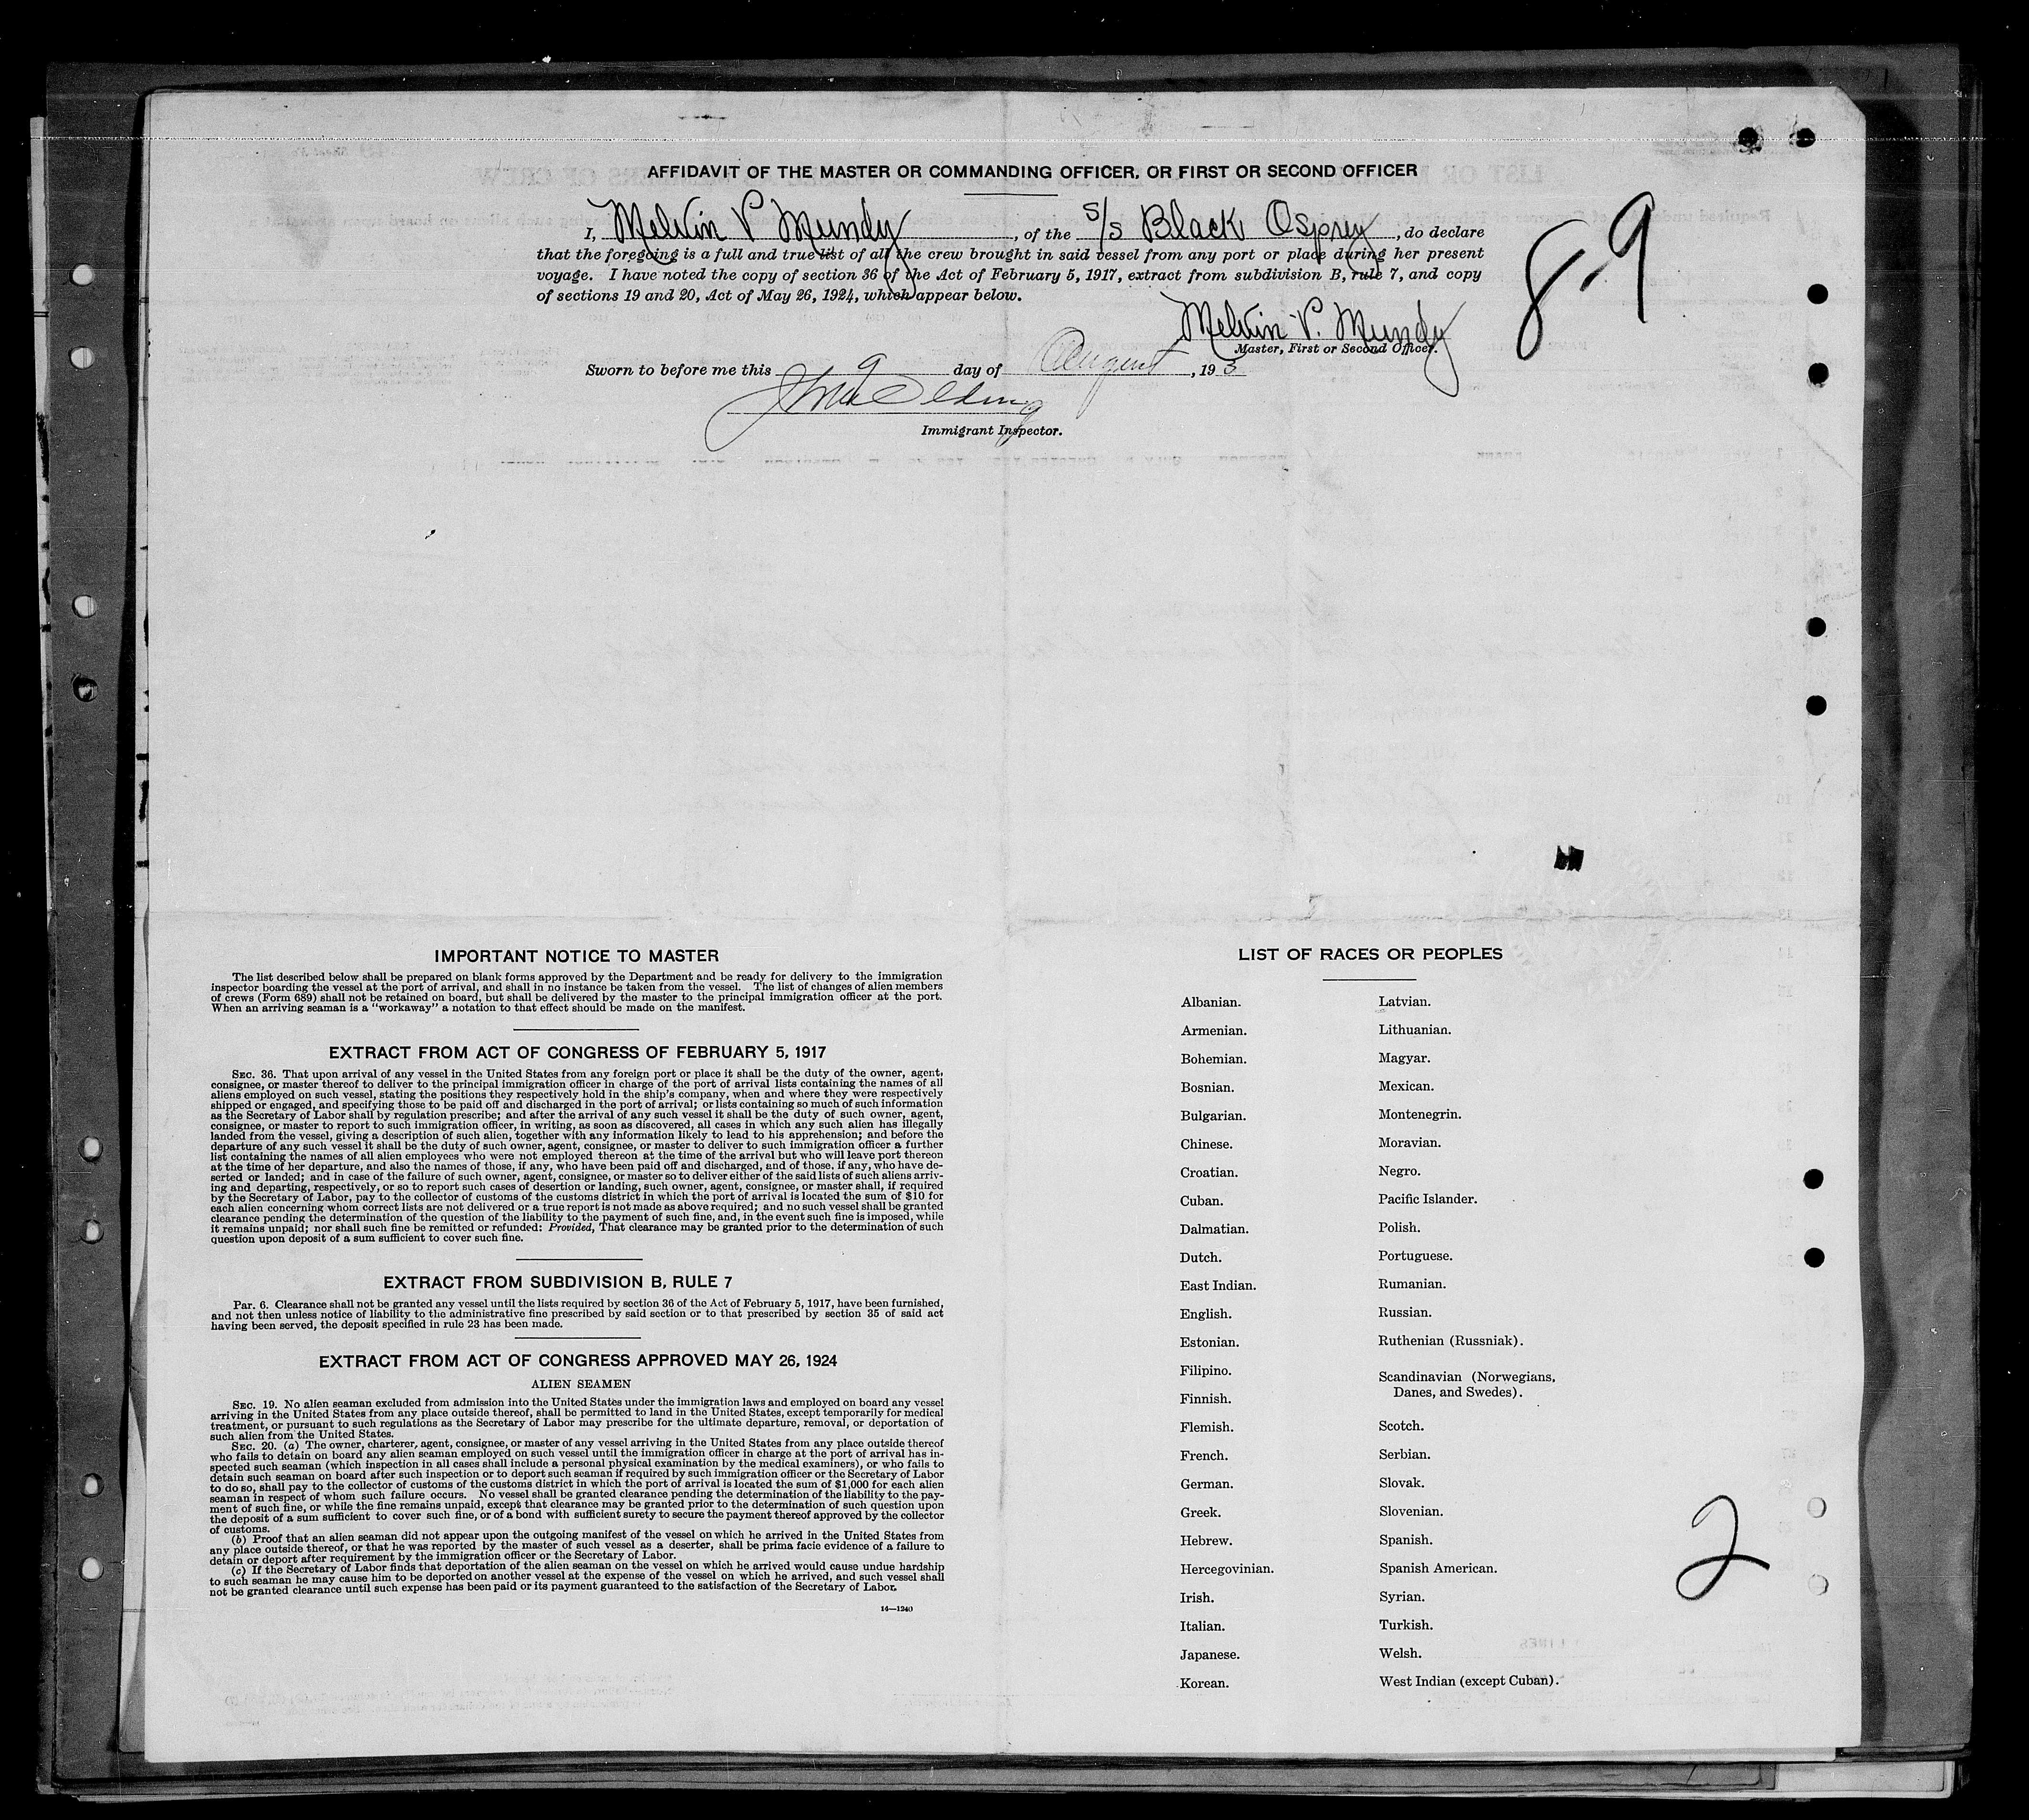 AFFIDAVIT OF THE MASTER OR COMMANDING OFFICER, OR FIRST OR SECOND OFFICER
I, Melvin P Mundy, of the S/S Black Osprey, do declare
that the foregoing is a full and true list of all the crew brought in said vessel from any port or place during her present
voyage. I have noted the copy of section 36 of the Act of February 5, 1917, extract from subdivision B, rule 7, and copy
of sections 19 and 20, Act of May 26, 1924, which appear below.
8-9
Melvin P. Mundy
Master, First or Second Officer.
Sworn to before me this 9 day of August, 193
Immigrant Inspector.
IMPORTANT NOTICE TO MASTER
The list described below shall be prepared on blank forms approved by the Department and be ready for delivery to the immigration
inspector boarding the vessel at the port of arrival, and shall in no instance be taken from the vessel. The list of changes of alien members
of crews (Form 689) shall not be retained on board, but shall be delivered by the master to the principal immigration officer at the port.
When an arriving seaman is a "workaway" a notation to that effect should be made on the manifest.
EXTRACT FROM ACT OF CONGRESS OF FEBRUARY 5, 1917
SEC. 36. That upon arrival of any vessel in the United States from any foreign port or place it shall be the duty of the owner, agent,
consignee, or master thereof to deliver to the principal immigration officer in charge of the port of arrival lists containing the names of all
aliens employed on such vessel, stating the positions they respectively hold in the ship's company, when and where they were respectively
shipped or engaged, and specifying those to be paid off and discharged in the port of arrival; or lists containing so much of such information
as the Secretary of Labor shall by regulation prescribe; and after the arrival of any such vessel it shall be the duty of such owner, agent,
consignee, or master to report to such immigration officer, in writing, as soon as discovered, all cases in which any such alien has illegally
landed from the vessel, giving a description of such alien, together with any information likely to lead to his apprehension; and before the
departure of any such vessel it shall be the duty of such owner, agent, consignee, or master to deliver to such immigration officer a further
list containing the names of all alien employees who were not employed thereon at the time of the arrival but who will leave port thereon
at the time of her departure, and also the names of those, if any, who have been paid off and discharged, and of those, if any, who have de-
serted or landed; and in case of the failure of such owner, agent, consignee, or master so to deliver either of the said lists of such aliens arriv-
ing and departing, respectively, or so to report such cases of desertion or landing, such owner, agent, consignee, or master shall, if required
by the Secretary of Labor, pay to the collector of customs of the customs district in which the port of arrival is located the sum of $10 for
each alien concerning whom correct lists are not delivered or a true report is not made as above required; and no such vessel shall be granted
clearance pending the determination of the question of the liability to the payment of such fine, and, in the event such fine is imposed, while
it remains unpaid; nor shall such fine be remitted or refunded: Provided, That clearance may be granted prior to the determination of such
question upon deposit of a sum sufficient to cover such fine.
EXTRACT FROM SUBDIVISION B, RULE 7
Par. 6. Clearance shall not be granted any vessel until the lists required by section 36 of the Act of February 5, 1917, have been furnished,
and not then unless notice of liability to the administrative fine prescribed by said section or to that prescribed by section 35 of said act
having been served, the deposit specified in rule 23 has been made.
EXTRACT FROM ACT OF CONGRESS APPROVED MAY 26, 1924
ALIEN SEAMEN
SEC. 19. No alien seaman excluded from admission into the United States under the immigration laws and employed on board any vessel
arriving in the United States from any place outside thereof, shall be permitted to land in the United States, except temporarily for medical
treatment, or pursuant to such regulations as the Secretary of Labor may prescribe for the ultimate departure, removal, or deportation of
such alien from the United States.
SEC. 20. (a) The owner, charterer, agent, consignee, or master of any vessel arriving in the United States from any place outside thereof
who fails to detain on board any alien seaman employed on such vessel until the immigration officer in charge at the port of arrival has in-
spected such seaman (which inspection in all cases shall include a personal physical examination by the medical examiners), or who fails to
detain such seaman on board after such inspection or to deport such seaman if required by such immigration officer or the Secretary of Labor
to do so, shall pay to the collector of customs of the customs district in which the port of arrival is located the sum of $1,000 for each alien
seaman in respect of whom such failure occurs. No vessel shall be granted clearance pending the determination of the liability to the pay-
ment of such fine, or while the fine remains unpaid, except that clearance may be granted prior to the determination of such question upon
the deposit of a sum sufficient to cover such fine, or of a bond with sufficient surety to secure the payment thereof approved by the collector
of customs.
(b) Proof that an alien seaman did not appear upon the outgoing manifest of the vessel on which he arrived in the United States from
any place outside thereof, or that he was reported by the master of such vessel as a deserter, shall be prima facie evidence of a failure to
detain or deport after requirement by the immigration officer or the Secretary of Labor.
(c) If the Secretary of Labor finds that deportation of the alien seaman on the vessel on which he arrived would cause undue hardship
to such seaman he may cause him to be deported on another vessel at the expense of the vessel on which he arrived, and such vessel shall
not be granted clearance until such expense has been paid or its payment guaranteed to the satisfaction of the Secretary of Labor.
14—1240
LIST OF RACES OR PEOPLES
Albanian.
Armenian.
Bohemian.
Bosnian.
Bulgarian.
Chinese.
Croatian.
Cuban.
Dalmatian.
Dutch.
East Indian.
English.
Estonian.
Filipino.
Finnish.
Flemish.
French.
German.
Greek.
Hebrew.
Hercegovinian.
Irish.
Italian.
Japanese.
Korean.
Latvian.
Lithuanian.
Magyar.
Mexican.
Montenegrin.
Moravian.
Negro.
Pacific Islander.
Polish.
Portuguese.
Rumanian.
Russian.
Ruthenian (Russniak).
Scandinavian (Norwegians,
Danes, and Swedes).
Scotch.
Serbian.
Slovak.
Slovenian.
Spanish.
Spanish American.
Syrian.
Turkish.
Welsh.
West Indian (except Cuban).
2